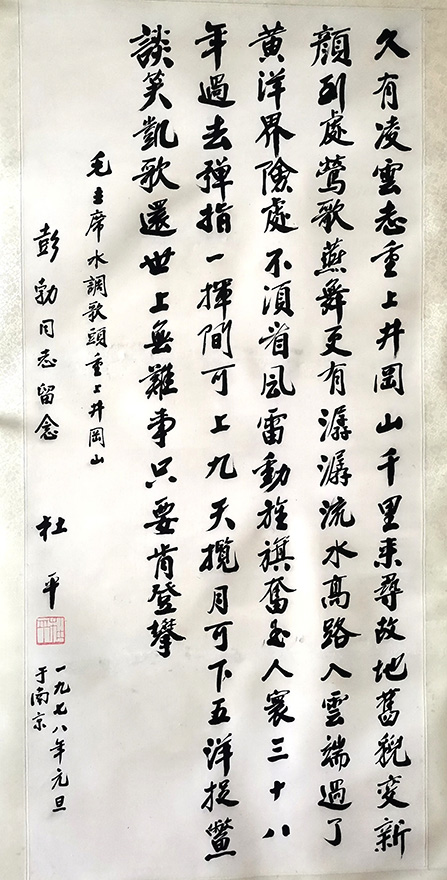 久有凌雲志重上井岡山千里來尋故地舊貌變新
顏到處鶯歌燕舞更有潺潺流水高路入雲端過了
黃洋界險處不須看風雷動旌旗奮是人寰三十八
年過去彈指一揮間可上九天攬月可下五洋捉鱉
談笑凱歌還世上無難事只要肯登攀
毛主席水調歌頭重上井岡山
彭勃同志留念
杜平
一九七八年元旦
于南京